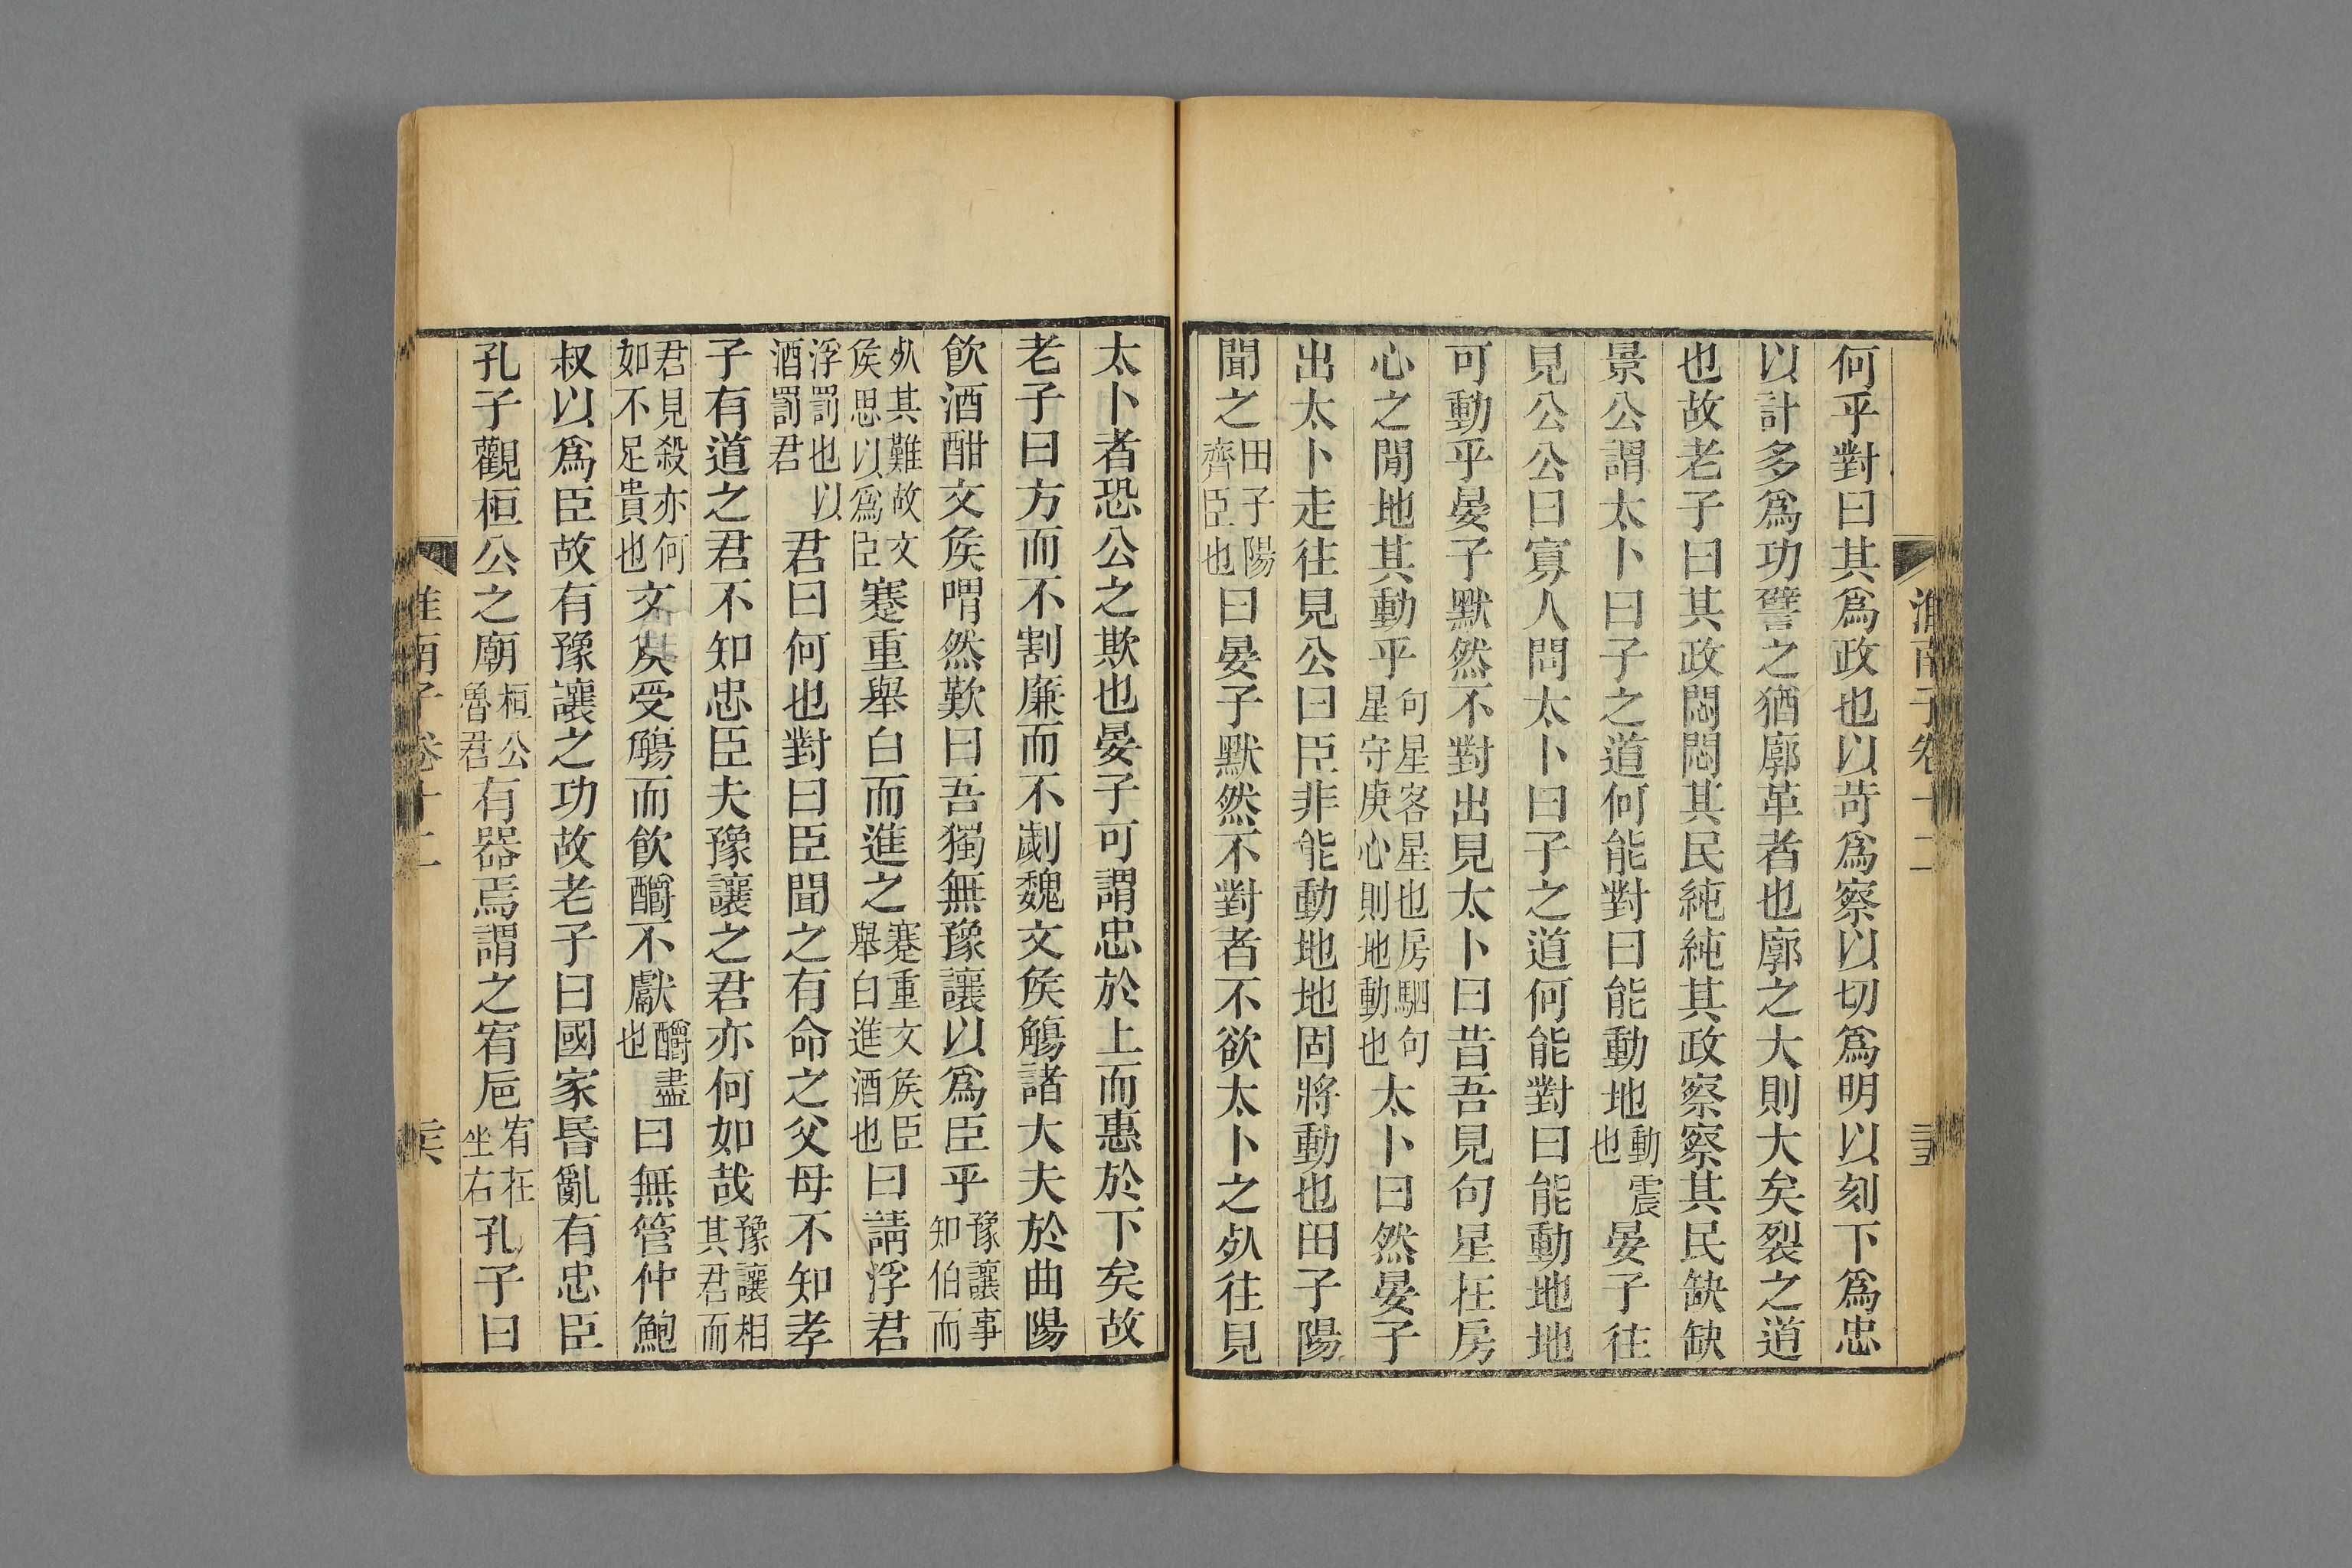 淮南子卷十二
何乎對曰其爲政也以苛爲察以切爲明以刻下爲忠
以計多爲功譬之猶廓革者也廓之大則大矣裂之道
也故老子曰其政悶悶其民純純其政察察其民缺缺
景公謂太卜曰子之道何能對曰能動地動震也晏子往
見公公曰寡人問太卜曰子之道何能對曰能動地地
可動乎晏子默然不對出見太卜曰昔吾見句星在房
心之閒地其動乎句星客星也房駟句星守庚心則地動也太卜曰然晏子
出太卜走往見公曰臣非能動地地固將動也田子陽
聞之田子陽齊臣也曰晏子默然不對者不欲太卜之死往見
太卜者恐公之欺也晏子可謂忠於上而惠於下矣故
老子曰方而不割廉而不劌魏文矦觴諸大夫於曲陽
飲酒酣文矦喟然歎曰吾獨無豫讓以爲臣乎豫讓事知伯而
死其難故文矦思以爲臣蹇重舉白而進之蹇重文矦臣舉白進酒也曰請浮君
浮罰也以酒罰君君曰何也對曰臣聞之有命之父母不知孝
子有道之君不知忠臣夫豫讓之君亦何如哉豫讓相其君而
君見殺亦何如不足貴也文矦受觴而飲釂不獻釂盡也曰無管仲鮑
叔以爲臣故有豫讓之功故老子曰國家昏亂有忠臣
孔子觀桓公之廟桓公魯君有器焉謂之宥卮宥在坐右孔子曰
淮南子卷十二